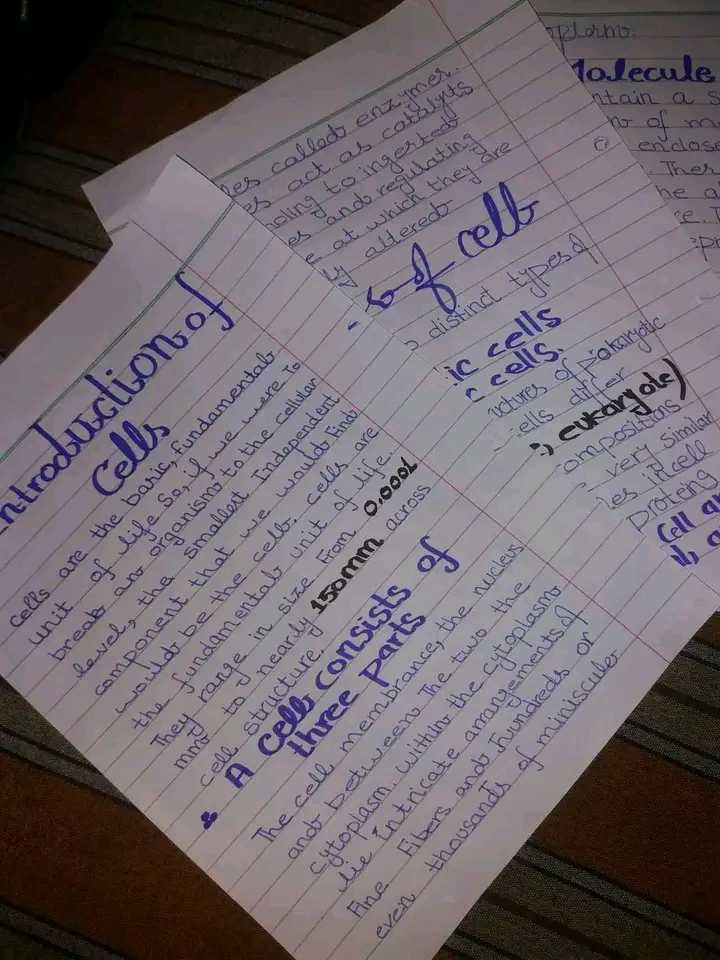 Introduction of
Cells
Cells are the basic, fundamental
unit of life So, if we were To
break an organism to the cellular
level, the smallest Independent
component that we would Find
would be the cell. cells are
the fundamental unit of life.
They range in size From 0.0001
mm to nearly 150mm across
cell structure,
A cell consists of
three parts
The cell membrance, the nucleus
and between The two the
cytoplasm. within the cytoplasm
lie Intricate arrangements of
Fine Fibers and Fundreds or
even thousands of miniscule
called enzymes.
act as catalysts
to ingested
and regulating
at which they are
altered
of cell
distinct types of
ic cells
cells.
of prokaryotic
ells differ
eukaryote)
ompositions
very similar
cell
proteing
Cell
Molecule
ntain a
of
enclose
Ther